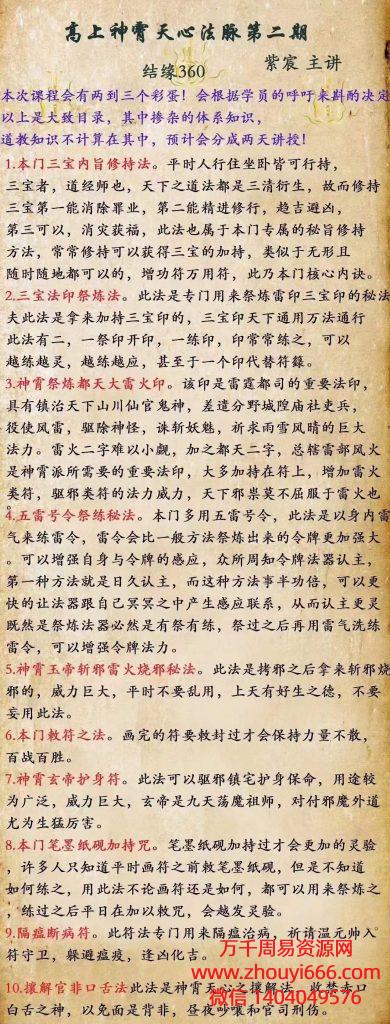 高上神霄天心法脉第二期
结缘360
紫宸 主讲
本次课程会有两到三个彩蛋！会根据学员的呼吁来斟酌决定
以上是大致目录，其中掺杂的体系知识，
道教知识不计算在其中，预计会分成两天讲授！
1.本门三宝内旨修持法。平时人行住坐卧皆可行持，
三宝者，道经师也，天下之道法都是三清衍生，故而修持
三宝第一能消除罪业，第二能精进修行，趋吉避凶，
第三可以，消灾获福，此法也属于本门专属的秘旨修持
方法，常常修持可以获得三宝的加持，类似于无形且
随时随地都可以的，增功符万用符，此乃本门核心内诀。
2.三宝法印祭炼法。此法是专门用来祭炼雷印三宝印的秘法
夫此法是拿来加持三宝印的，三宝印天下通用万法通行
此法有二，一祭印开印，一练印，印常常练之，可以
越练越灵，越练越应，甚至于一个印代替符籙。
3.神霄祭炼都天大雷火印。该印是雷霆都司的重要法印，
具有镇治天下山川仙官鬼神，差遣分野城隍庙社吏兵，
役使风雷，驱除神怪，诛斩妖魅，祈求雨雪风晴的巨大
法力。雷火二字难以小觑，加之都天二字，总辖雷部风火
是神霄派所需要的重要法印，大多加持在符上，增加雷火
类符，驱邪类符的法力威力，天下邪祟莫不屈服于雷火也
。
4.五雷号令祭练秘法。本门多用五雷号令，此法是以身内雷
气来练雷令，雷令会比一般方法祭炼出来的令牌更加强大
。可以增强自身与令牌的感应，众所周知令牌法器认主，
第一种方法就是日久认主，而这种方法事半功倍，可以更
快的让法器跟自己冥冥之中产生感应联系，从而认主更灵
既然是祭炼法器必然是有祭有练，祭过之后再用雷气洗练
雷令，可以增强令牌法力。
5.神霄玉帝斩邪雷火烧邪秘法。此法是拷邪之后拿来斩邪烧
邪的，威力巨大，平时不要乱用，上天有好生之德，不要
妄用此法。
6.本门敕符之法。画完的符要敕封过才会保持力量不散，
百战百胜。
7.神霄玄帝护身符。此法可以驱邪镇宅护身保命，用途较
为广泛，威力巨大，玄帝是九天荡魔祖师，对付邪魔外道
尤为生猛厉害。
8.本门笔墨纸砚加持咒。笔墨纸砚加持过才会更加的灵验
，许多人只知道平时画符之前敕笔墨纸砚，但是不知道
如何练之，用此法不论画符还是如何，都可以用来祭炼之
，练过之后平日在加以敕咒，会越发灵验。
9.隔瘟断病符。此符法专门用来隔瘟治病，祈请温元帅入
符守卫，躲避瘟疫，逢凶化吉。
10.禳解官非口舌法此法是神霄天心之禳解法，收禁赤口
白舌之神，以免面是背非，昼夜吵嚷和官司刑伤。
万千周易资源网
www.zhouyi666.com
微信 1404049576